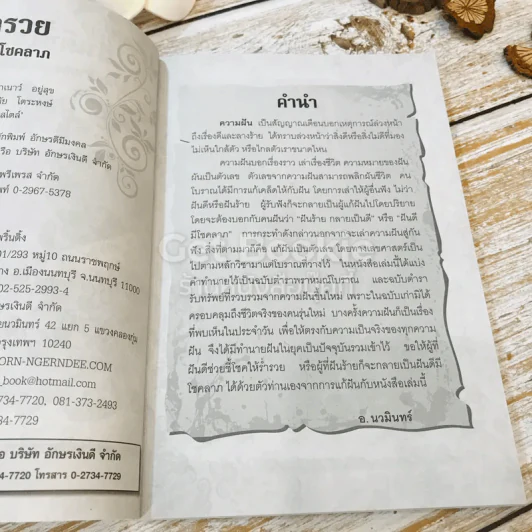 รวย
โชคลาภ
อยู่สุข
โตระหงษ์
จัดพิมพ์ อักษรดีมีมงคล
บริษัท อักษรเงินดี จำกัด
พรีเพรส จำกัด
0-2967-5378
01/293 หมู่10 ถนนราชพฤกษ์
อ.เมืองนนทบุรี จ.นนทบุรี 11000
02-525-2993-4
อักษรเงินดี จำกัด
นวมินทร์ 42 แยก 5 แขวงคลองกุ่ม
กรุงเทพฯ 10240
ORN-NGERNDEE.COM
_book@hotmail.com
734-7720, 081-373-2493
734-7729
บริษัท อักษรเงินดี จำกัด
4-7720 โทรสาร 0-2734-7729
คำนำ
ความฝัน เป็นสัญญาณเตือนบอกเหตุการณ์ล่วงหน้า
ถึงเรื่องดีและลางร้าย ได้ทราบล่วงหน้าว่าสิ่งดีหรือสิ่งไม่ดีที่มอง
ไม่เห็นใกล้ตัว หรือไกลตัวเราขนาดไหน
ความฝันบอกเรื่องราว เล่าเรื่องชีวิต ความหมายของฝัน
ผันเป็นตัวเลข ตัวเลขจากความฝันสามารถพลิกผันชีวิต คน
โบราณได้มีการแก้เคล็ดให้กับฝัน โดยการเล่าให้ผู้อื่นฟัง ไม่ว่า
ฝันดีหรือฝันร้าย ผู้รับฟังก็จะกลายเป็นผู้แก้ฝันไปโดยปริยาย
โดยจะต้องบอกกับคนฝันว่า “ฝันร้าย กลายเป็นดี” หรือ “ฝันดี
มีโชคลาภ” การกระทำดังกล่าวนอกจากจะเล่าความฝันสู่กัน
ฟัง สิ่งที่ตามมาก็คือ แก้ฝันเป็นตัวเลข โดยทางเลขศาสตร์เป็น
ไปตามหลักวิชามาแต่โบราณที่วางไว้ ในหนังสือเล่มนี้ได้แบ่ง
คำทำนายไว้เป็นฉบับตำราพรหมณ์โบราณ และฉบับตำรา
รับทรัพย์ที่รวบรวมจากความฝันขึ้นใหม่ เพราะในฉบับเก่ามิได้
ครอบคลุมถึงชีวิตจริงของคนรุ่นใหม่ บางครั้งความฝันก็เป็นเรื่อง
ที่พบเห็นในประจำวัน เพื่อให้ตรงกับความเป็นจริงของทุกความ
ฝัน จึงได้มีทำนายฝันในยุคเป็นปัจจุบันรวมเข้าไว้ ขอให้ผู้ที่
ฝันดีช่วยชี้โชคให้ร่ำรวย หรือผู้ที่ฝันร้ายก็จะกลายเป็นฝันดีมี
โชคลาภ ได้ด้วยตัวท่านเองจากการแก้ฝันกับหนังสือเล่มนี้
อ. นวมินทร์